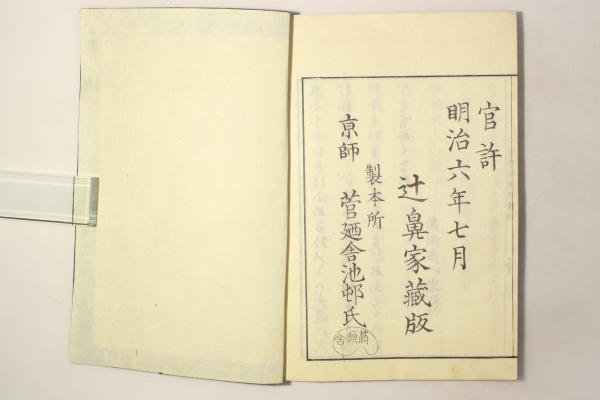 官許
明治六年七月
辻鼻家藏版
製本所
京師 菅廼舎池邨氏
菅廼舎